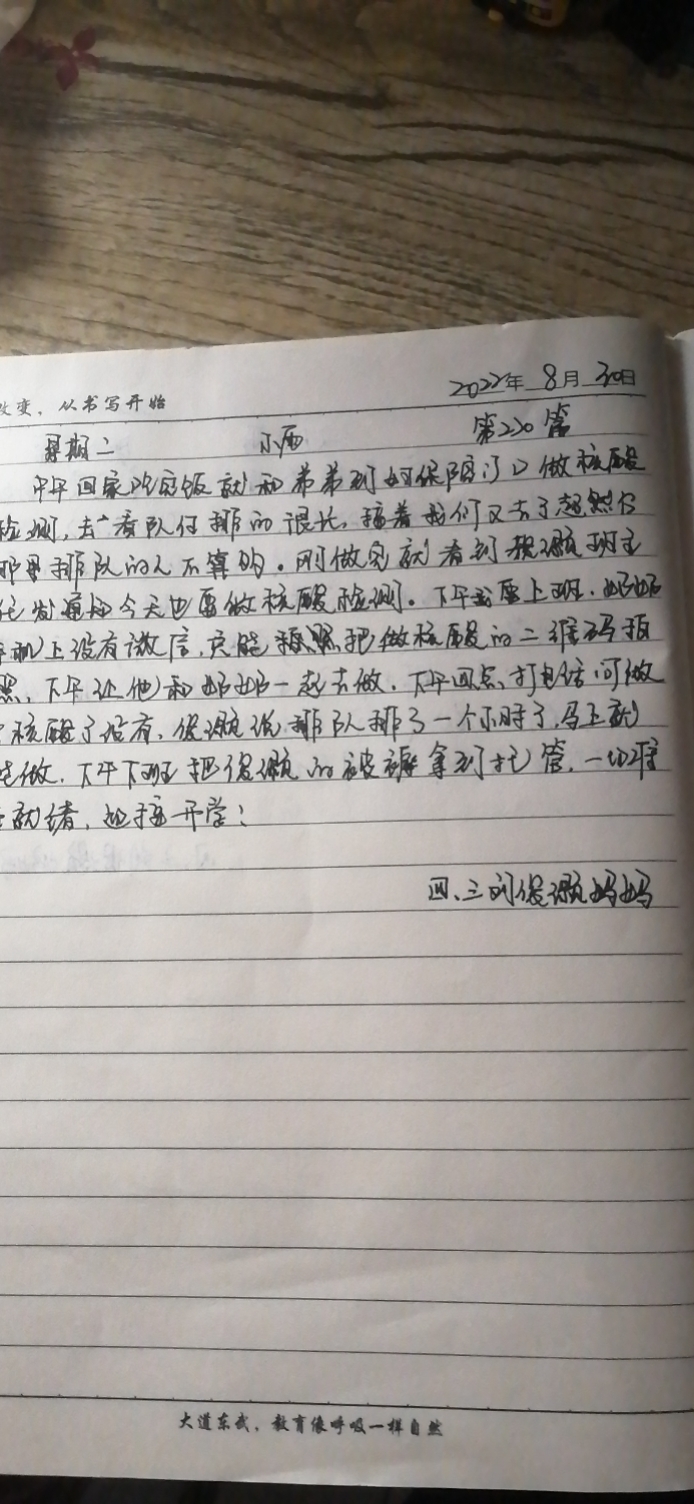 改变，从书写开始
2022年 8月 30日
星期二 小雨 第230篇
中午回家吃完饭就和弟弟到妇保院门口做核酸
检测，去一看队伍排的很长，接着我们又去了超然
那里排队的人不算多。刚做完就看到保颂班主
任发通知今天也要做核酸检测。下午我要上班，奶奶
手机上没有微信，只能把做核酸的二维码拍
照，下午让他和奶奶一起去做，下午四点，打电话问做
核酸了没有，保颂说排队排了一个小时了，马上就
能做，下午下班把保颂的被褥拿到托管，一切准
备就绪，迎接开学！
四、三刘保颂妈妈
大道东武，教育像呼吸一样自然